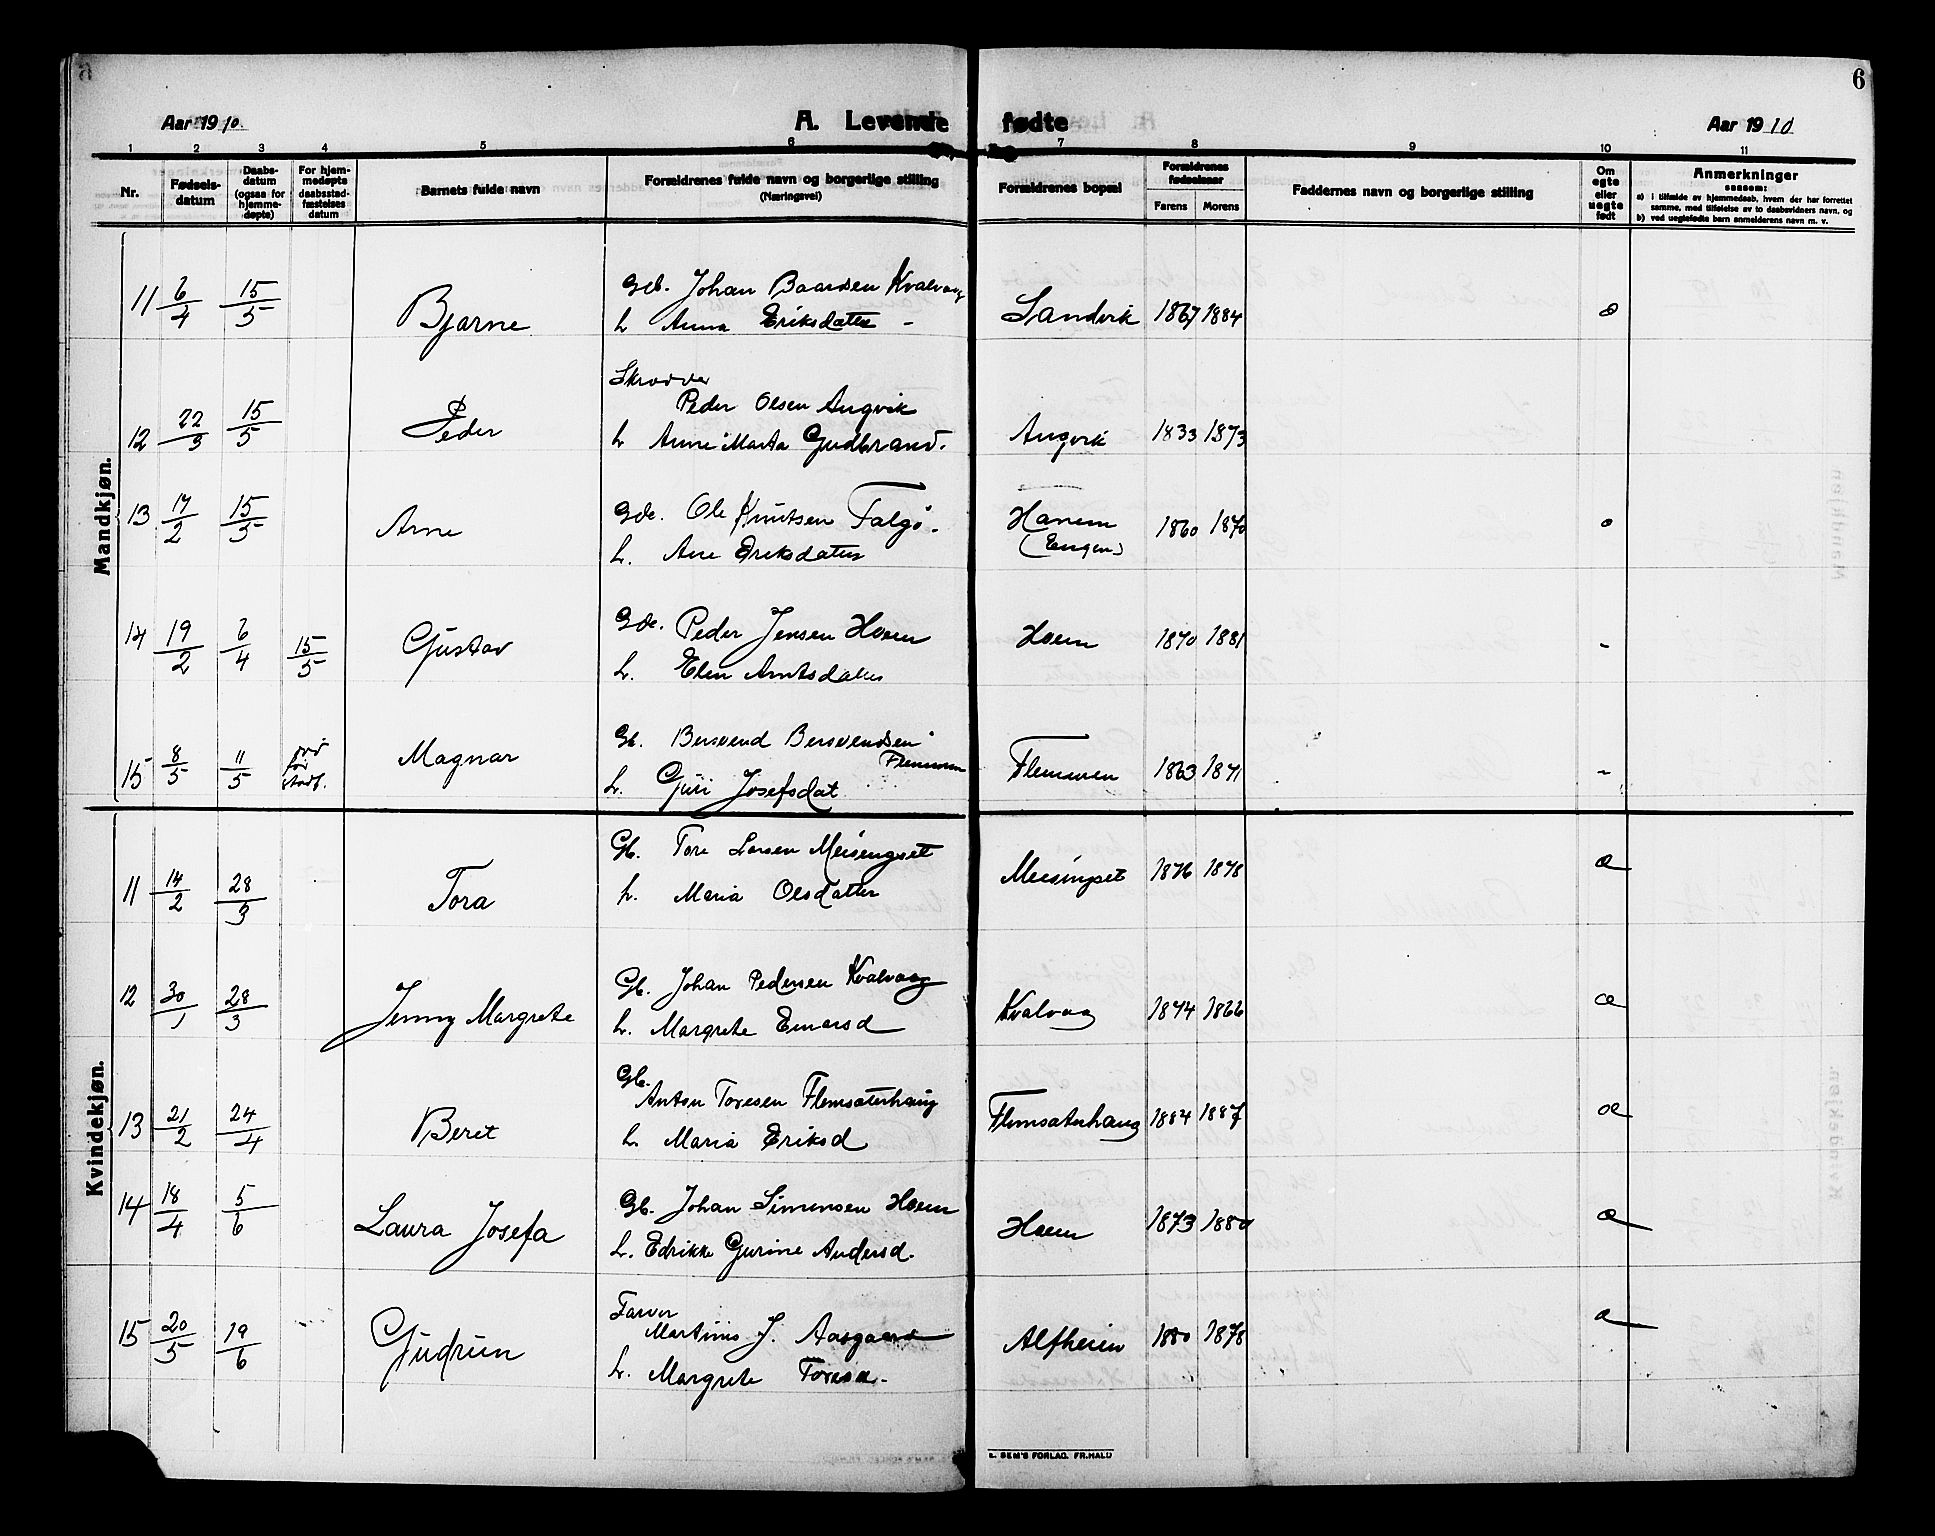 6
Aar 1910.
A. Levende fødte
Aar 1910
1 2 3 4 5 6 7 8 9 10 11
Nr.
Fødsels-
datum
Daabs-
datum
(ogsaa for
hjemme-
døpte)
For hjem-
medøpte
daabsstad-
fæstelses
datum
Barnets fulde navn
Forældrenes fulde navn og borgerlige stilling
(Næringsvei)
Forældrenes bopæl
Forældrenes
fødselsaar
Farens Morens
Faddernes navn og borgerlige stilling
Om
egte
eller
uegte
født
Anmerkninger
saasom:
a) i tilfælde av hjemmedaab, hvem der har forrettet
samme, med tilføielse av to daabsvidners navn, og
b) ved uegtefødte barn anmelderens navn m. v.
Mandkjøn.
11 6/4 15/5 Bjarne Gb. Johan Baardsen Kvalvaag Sandvik 1867 1884
h. Anna Eriksdatter -
Skrædder
12 22/3 15/5 Peder Peder Olsen Angvik Angvik 1833 1873
h. Anne Marta Gudbrand.
13 17/2 15/5 Arne Gde. Ole Knutsen Talgø. Hanem 1860 1870
(Engen)
h. Ane Eriksdatter
14 19/2 6/4 15/5 Gustav Gde. Peder Jensen Hoem Hoem 1870 1881 -
h. Elen Arntsdatter
15 8/5 11/5 Magnar Gb. Bersvend Bersvendsen Flemmen Flemmen 1863 1871 -
h. Guri Josefsdat
Kvindekjøn.
11 14/2 28/3 Tora Gb. Tore Larsen Meisingset Meisingset 1876 1878
h. Maria Olsdatter
12 30/1 28/3 Jenny Margrete Gb. Johan Pedersen Kvalvaag Kvalvaag 1874 1866
h. Margrete Einarsd
Gb.
13 21/2 24/4 Beret Anton Toresen Flemsæterhaug Flemsæterhaug 1884 1887
h. Maria Eriksd
14 18/4 5/6 Laura Josefa Gb. Johan Simonsen Hoem Hoem 1873 1880
h. Edrikke Gurine Andersd.
Farver
15 20/5 19/6 Gudrun Martinus J. Aasgaard Alfheim 1880 1878
h. Margrete Toresd.
L. SEM'S FORLAG. FR.HALD